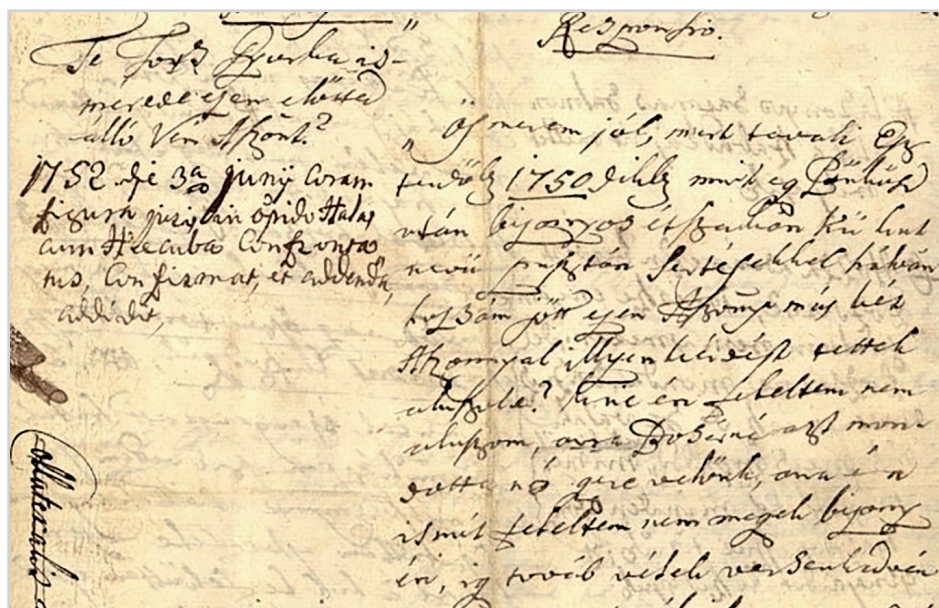 Responsio.
Te Torz Gyurka is-
mérede ezen elötted
álló Vén Aszont?
1752 die 3a Junÿ Coram
figura juris in oppido Halas
cum Hecuba Confronta
tus, Confirmat, et addenda,
addidit,
Ösmerem jól, mert tavali Esz
tendöb 1750dikb mint eg Pünkösd
után bizonyos étszakán Kü
nevü pusztán Sertésekkel hálván
hozzám jött ezen Aszony más két
Aszonyal illyen kérdést tettek
aluszole? kire én feleltem nem
aluszom, arra Bosárné azt mon
dotta nó gere velünk, arra én
ismét feleltem nem megyek bizony
én, ig továb vélek versenkedvén